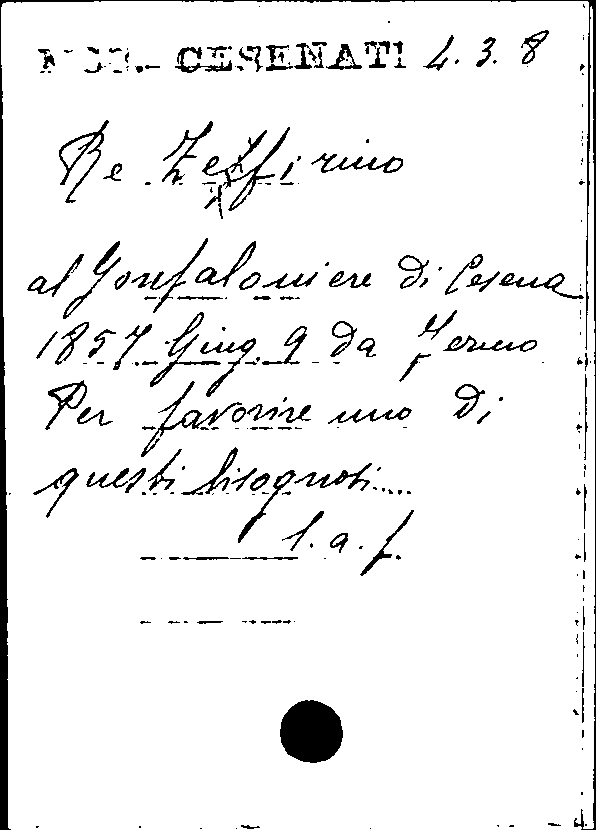 MSS. CESENATI 4. 3. 8
Re Zeffirino
al Gonfaloniere di Cesena
1857 Giug. 9 da Fermo
Per favorire uno di
questi bisognosi...
l. a. f.